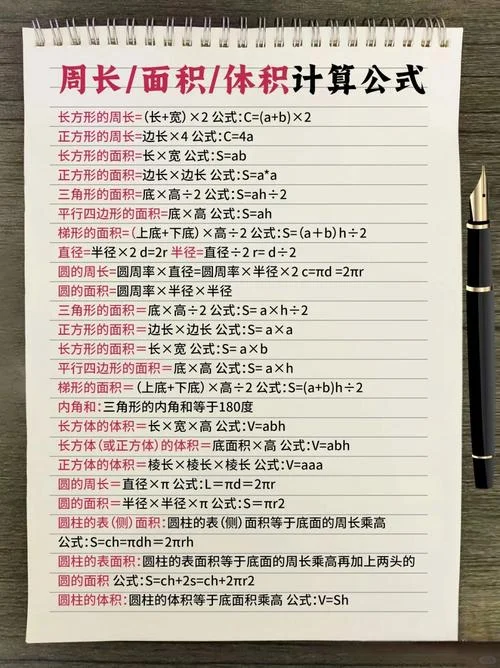 周长/面积/体积计算公式
长方形的周长=(长+宽)×2 公式:C=(a+b)×2
正方形的周长=边长×4 公式:C=4a
长方形的面积=长×宽 公式:S=ab
正方形的面积=边长×边长 公式:S=a*a
三角形的面积=底×高÷2 公式:S=ah÷2
平行四边形的面积=底×高 公式:S=ah
梯形的面积=(上底+下底)×高÷2 公式:S=(a+b)h÷2
直径=半径×2 d=2r 半径=直径÷2 r= d÷2
圆的周长=圆周率×直径=圆周率×半径×2 c=πd =2πr
圆的面积=圆周率×半径×半径
三角形的面积=底×高÷2 公式:S= a×h÷2
正方形的面积=边长×边长 公式:S= a×a
长方形的面积=长×宽 公式:S= a×b
平行四边形的面积=底×高 公式:S= a×h
梯形的面积=(上底+下底)×高÷2 公式:S=(a+b)h÷2
内角和:三角形的内角和等于180度
长方体的体积=长×宽×高 公式:V=abh
长方体(或正方体)的体积=底面积×高 公式:V=abh
正方体的体积=棱长×棱长×棱长 公式:V=aaa
圆的周长=直径×π 公式:L=πd=2πr
圆的面积=半径×半径×π 公式:S=πr2
圆柱的表(侧)面积:圆柱的表(侧)面积等于底面的周长乘高
公式:S=ch=πdh=2πrh
圆柱的表面积:圆柱的表面积等于底面的周长乘高再加上两头的
圆的面积 公式:S=ch+2s=ch+2πr2
圆柱的体积:圆柱的体积等于底面积乘高 公式:V=Sh